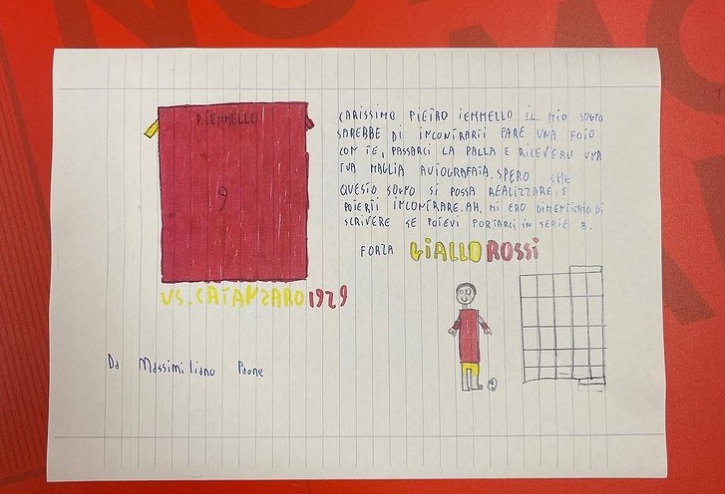 P. IEMMELLO
9
CARISSIMO PIETRO IEMMELLO IL MIO SOGNO
SAREBBE DI INCONTRARTI FARE UNA FOTO
CON TE, PASSARCI LA PALLA E RICEVERE UNA
TUA MAGLIA AUTOGRAFATA. SPERO CHE
QUESTO SOGNO SI POSSA REALIZZARE E
POTERTI INCONTRARE. AH, MI ERO DIMENTICATO DI
SCRIVERE SE POTEVI PORTARCI IN SERIE B.
FORZA GIALLO ROSSI
US. CATANZARO 1929
Da Massimiliano Paone